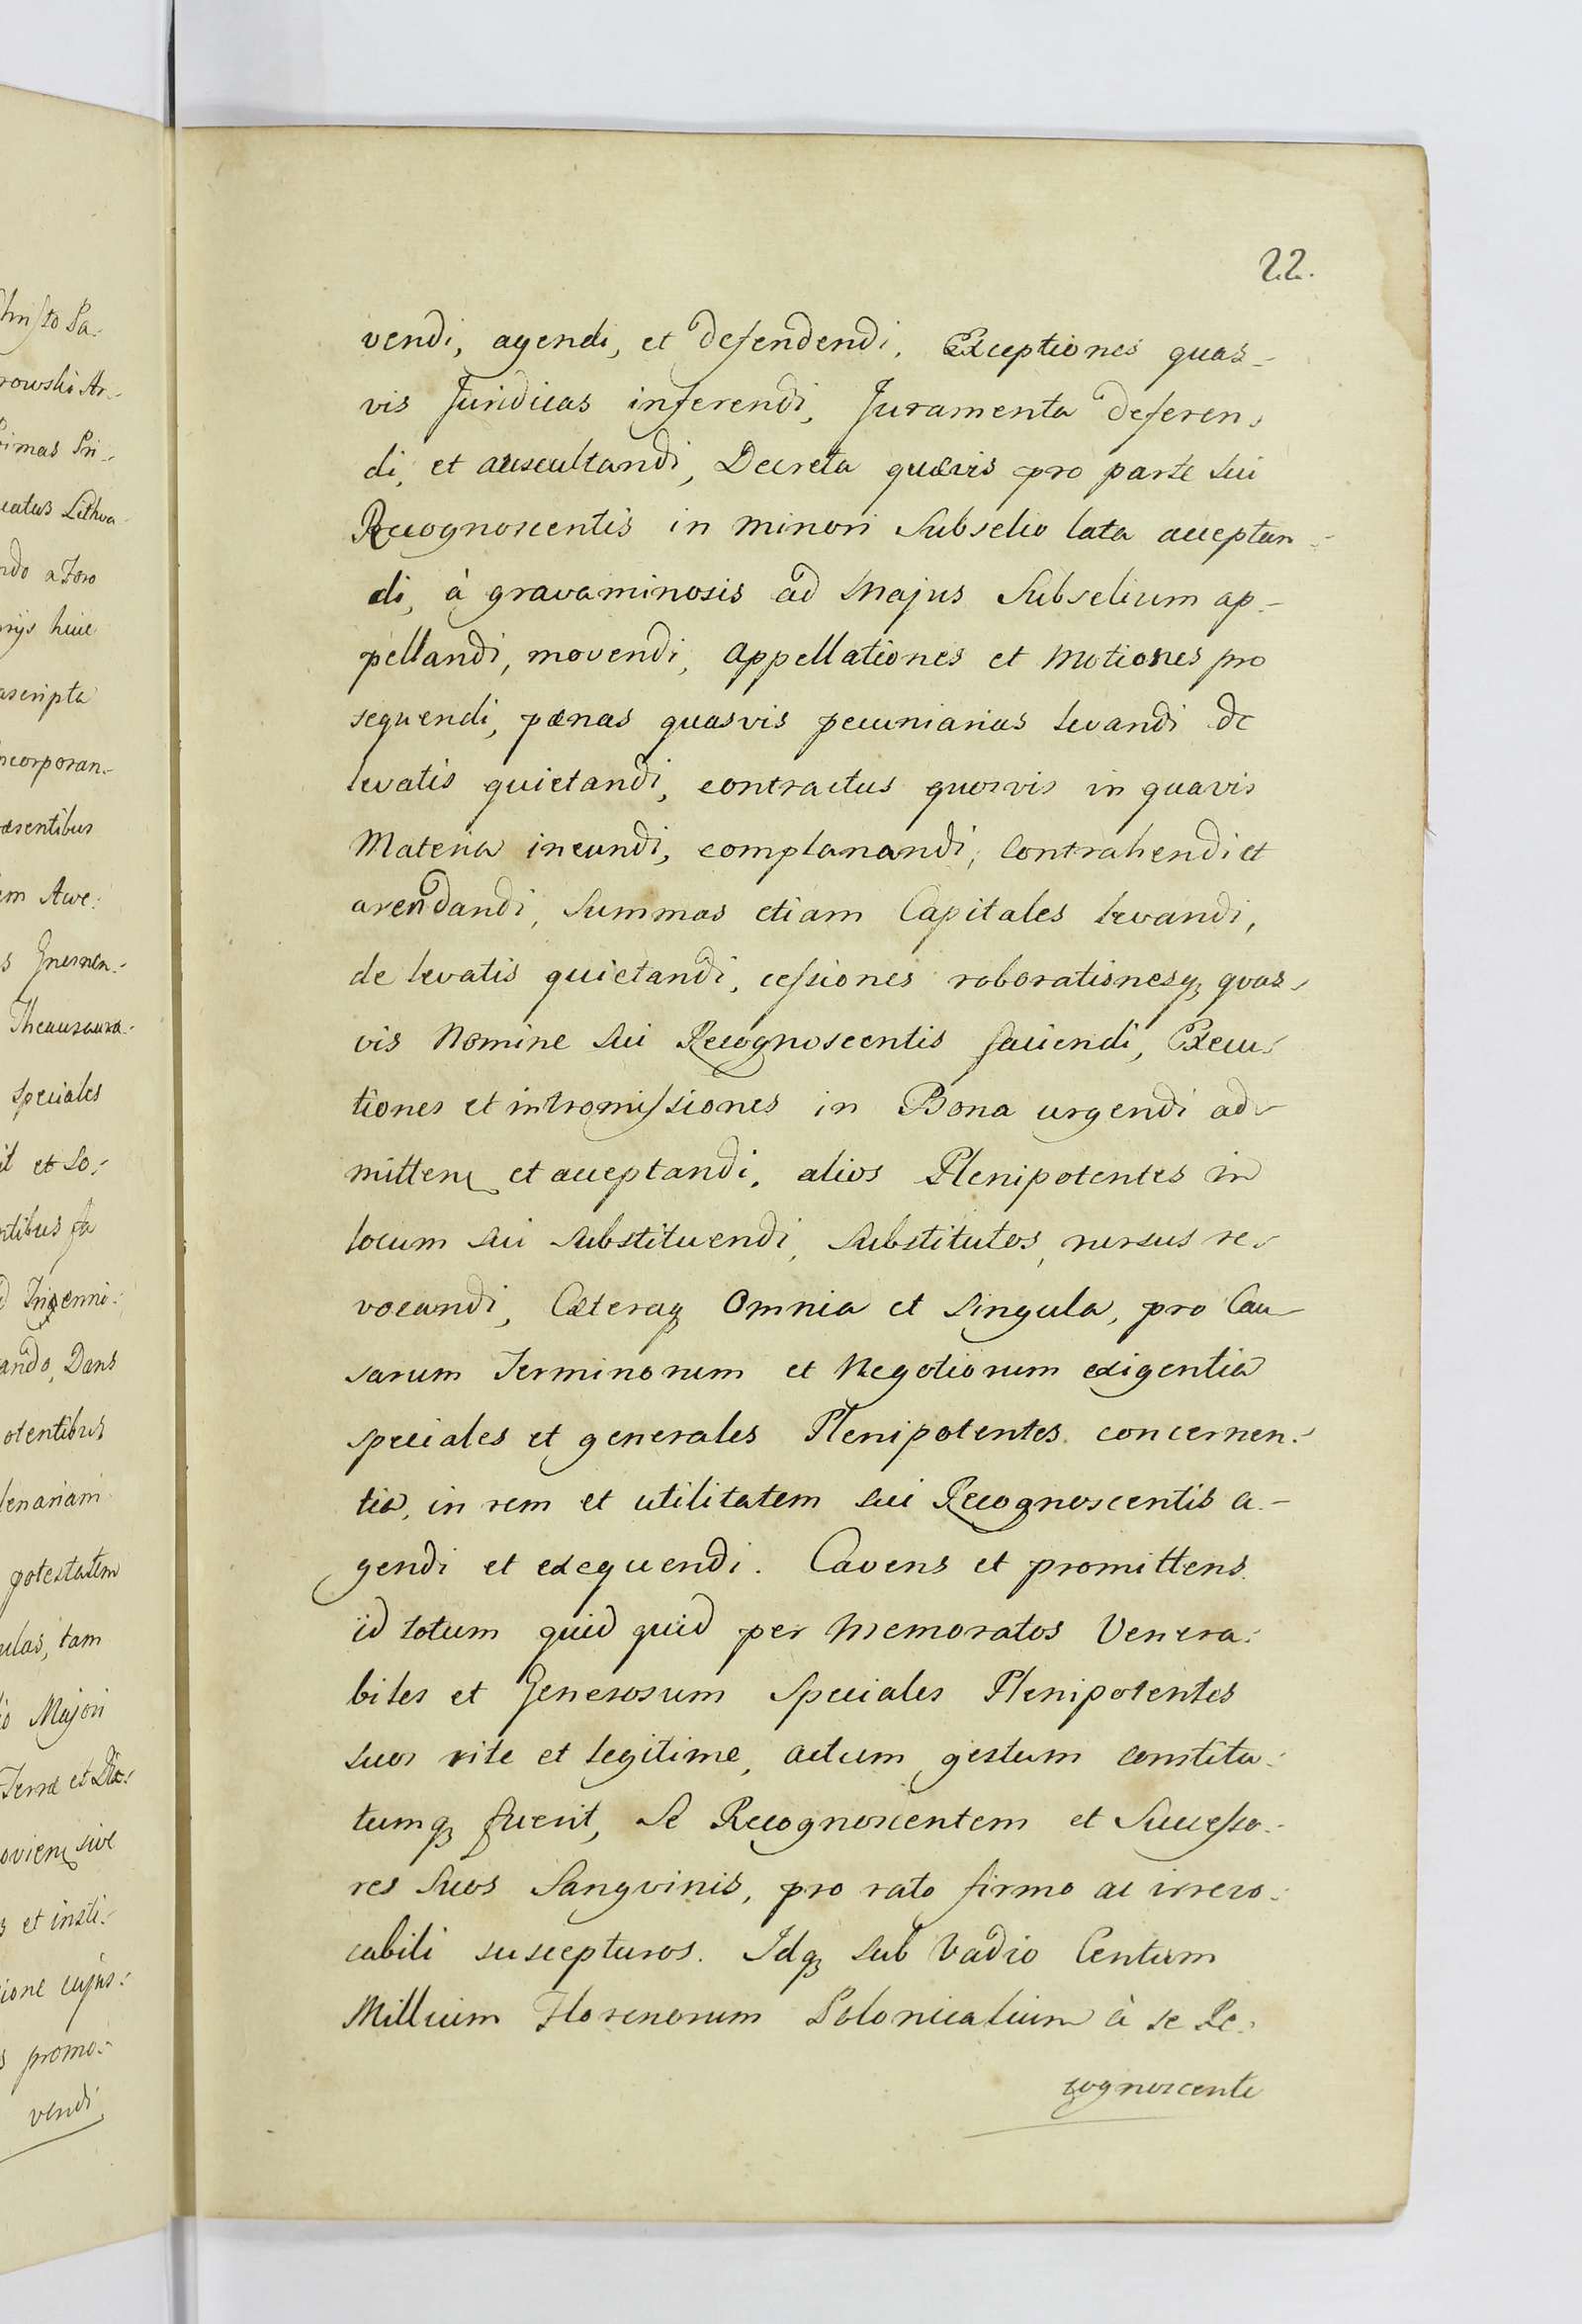 22.
vendi, agendi, et defendendi, Exceptiones quas-
vis Juridicas inferendi, Juramenta deferen-
di, et auscultandi, Decreta quævis pro parte sui
Recognoscentis in minori Subselio lata acceptan-
di, à gravaminosis ad Majus Subselium ap-
pellandi, movendi, appellationes et Motiones pro
sequendi, pænas quasvis pecuniarias levandi de
levatis quietandi, contractus quosvis in quavis
Materia ineundi, complanandi, Contrahendi et
arendandi, Summas etiam Capitales levandi,
de levatis quietandi, cessiones roborationesq; quas-
vis Nomine sui Recognoscentis faciendi, Execu-
tiones et intromissiones in Bona urgendi ad-
mitten et acceptandi, alios Plenipotentes in
locum sui substituendi, substitutos, rursus re-
vocandi, Cæteraq; Omnia et singula, pro Cau-
sarum Terminorum et Negotiorum exigentia
speciales et generales Plenipotentes concernen-
tia, in rem et utilitatem sui Recognoscentis a-
gendi et exequendi. Cavens et promittens
id totum quid quid per Memoratos Venera-
biles et Generosum Speciales Plenipotentes
suos rite et legitime, actum, gestum constitu-
tumq; fuerit, se Recognoscentem et Successo-
res Suos Sangvinis, pro rato firmo ac irrevo-
cabili suscepturos. Idq; sub Vadio Centum
Millium Florenorum Polonicalium à se Re-
cognoscente
hristo Pa-
rowski Ar-
rimas Pri-
catus Lithva-
ndo a Foro
rijs huic
ascripta
ncorporan-
æsentibus
em Awe:
s Gnesnen-
Thesaura-
speciales
it et so-
ntibus fa
d Ingenni-
ando, Dans
otentibus
lenariam
potestatem
ulas, tam
io Majori
Terræ et Dis-
ovien sive
s et insti-
ione cujus-
s promo-
vendi